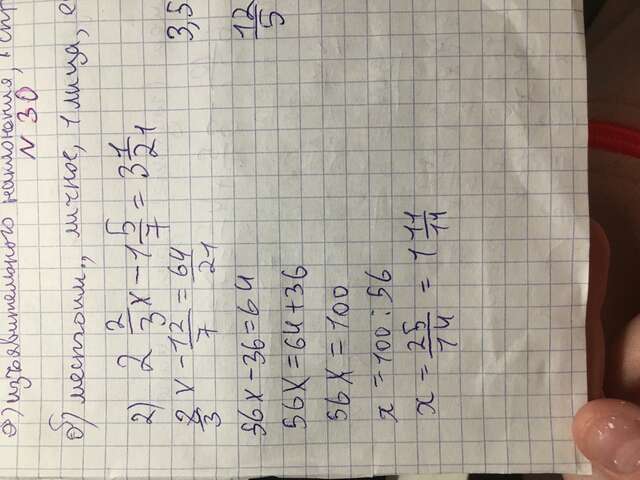 а) изъявительного наклонения,
N 30
б) местоим., личное, 1 лица,
2) 2 2/3 x - 1 5/7 = 3 1/21
8/3 x - 12/7 = 64/21
3,5
56x - 36 = 64
12/5
56x = 64 + 36
56x = 100
x = 100 : 56
x = 25/14 = 1 11/14